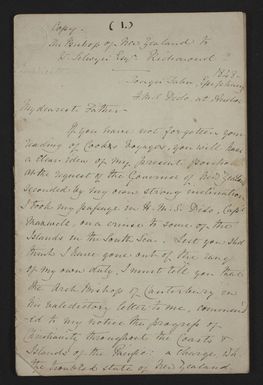 Copy. (1.)
The Bishop of New Zealand to
Selwyn Esqr Richmond
1848
Tonga Tabu, Epiphany
H.M.S. Dido, at Anchor
My dearest Father -
If you have not forgotten your
reading of Cook's Voyages, you will have
a clear idea of my present position
At the request of the Governor of New Zealand
seconded by my own strong inclination
I took my passage in H.M.S. Dido, Capt.
Maxwell, on a cruise to some of the
Islands in the South Sea. Lest you shd
think I have gone out of the range
of my own duty, I must tell you that
the Arch Bishop of Canterbury in
his valedictory letter to me, commend
-ed to my notice the progress of
Christianity throughout the Coasts &
Islands of the Pacific: a charge, wh.
the troubled state of New Zealand